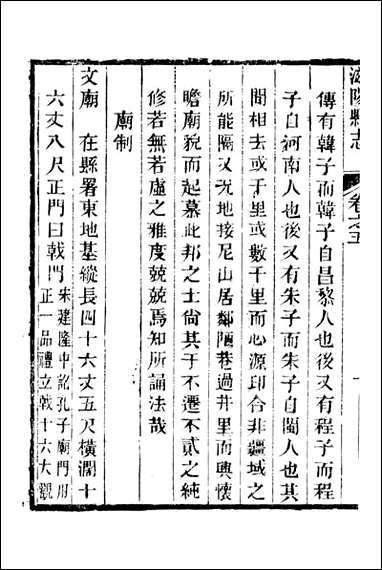 滋陽縣志
卷之五
傳有韓子而韓子自昌黎人也後又有程子而程
子自河南人也後又有朱子而朱子自閩人也其
間相去或千里或數千里而心源印合非疆域之
所能隔又況地接尼山居鄰陋巷過井里而興懷
瞻廟貌而起慕此邦之士尙其于不遷不貳之純
修若無若虛之雅度兢兢焉知所誦法哉
廟制
文廟 在縣署東地基縱長四十六丈五尺橫濶十
六丈八尺正門曰戟門
宋建隆中詔孔子廟門用
正一品禮立戟十六大觀